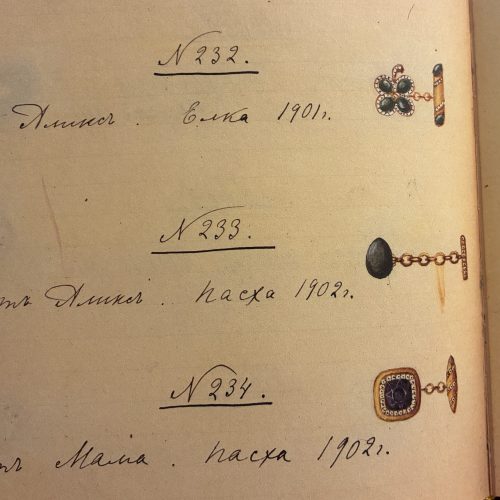 N 232.
Аликсъ. Елка 1901 г.
N 233.
тъ Аликсъ. Пасха 1902 г.
N 234.
тъ Мама. Пасха 1902 г.